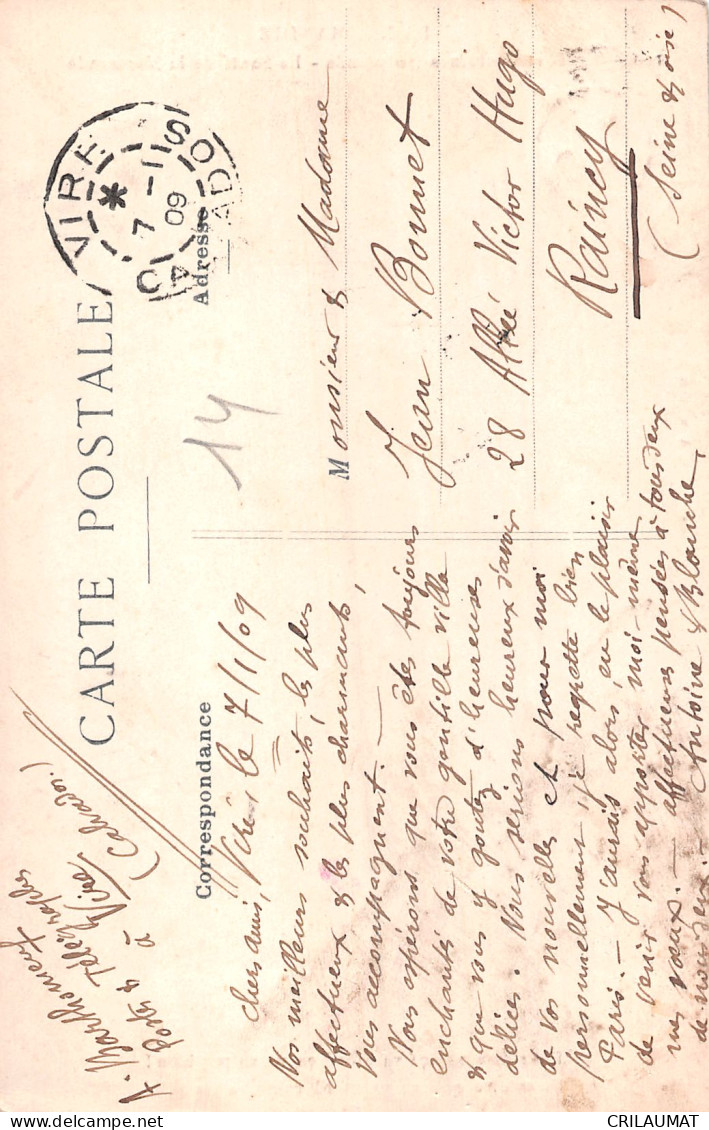 CARTE POSTALE
Correspondance
Adresse
VIRE
7 - 1
09
CALVADOS
14
A. Barthomeuf
Postes & Télégraphes
à Vire
(Calvados.)
Vire, le 7/1/09
Chers amis,
Nos meilleurs souhaits, les plus
affectueux & les plus charmants,
vous accompagnent. —
Nous espérons que vous êtes toujours
enchantés de votre gentille ville
& que vous y goutez d'heureuses
délices. Nous serions heureux d'avoir
de vos nouvelles et pour moi
personnellement je regrette bien
Paris. — J'aurais alors, eu le plaisir
de venir vous apporter moi-même
mes vœux. — affectueuses pensées à tous deux
de nous deux. — Antoine & Blanche,
Monsieur & Madame
Jean Bonnet
28 Allée Victor Hugo
Raincy
(Seine & Oise)
CRILAUMAT